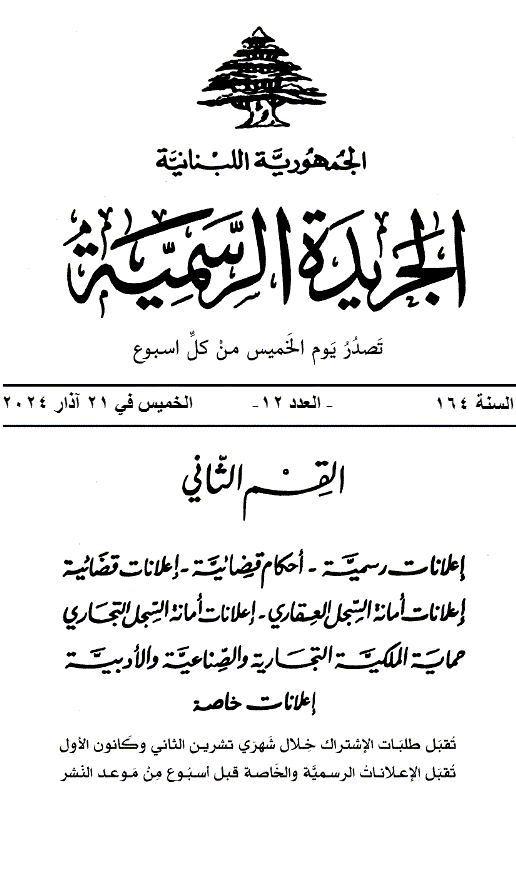 الجمهوريّة اللبنانيّة
الجريدة الرّسميّة
تَصدُرُ يَوم الخَميس منْ كلِّ اسبوع
السنة ١٦٤ - العدد ١٢- الخميس في ٢١ آذار ٢٠٢٤
القِسْم الثّاني
إعلانات رسميَّة - أحكام قضائيَّة - إعلانات قضائية
إعلانات أمانة السّجل العقاري - إعلانات أمانة السّجل التجاري
حماية الملكيَّة التجارية والصّناعيَّة والأدبيَّة
إعلانات خاصة
تُقبَل طلبَات الإشتراك خِلال شَهرَي تشرين الثاني وكَانون الأول
تُقبَل الإعلاناتُ الرسميَّة والخَاصة قبل أسبُوع مِنْ مَوعد النَشر